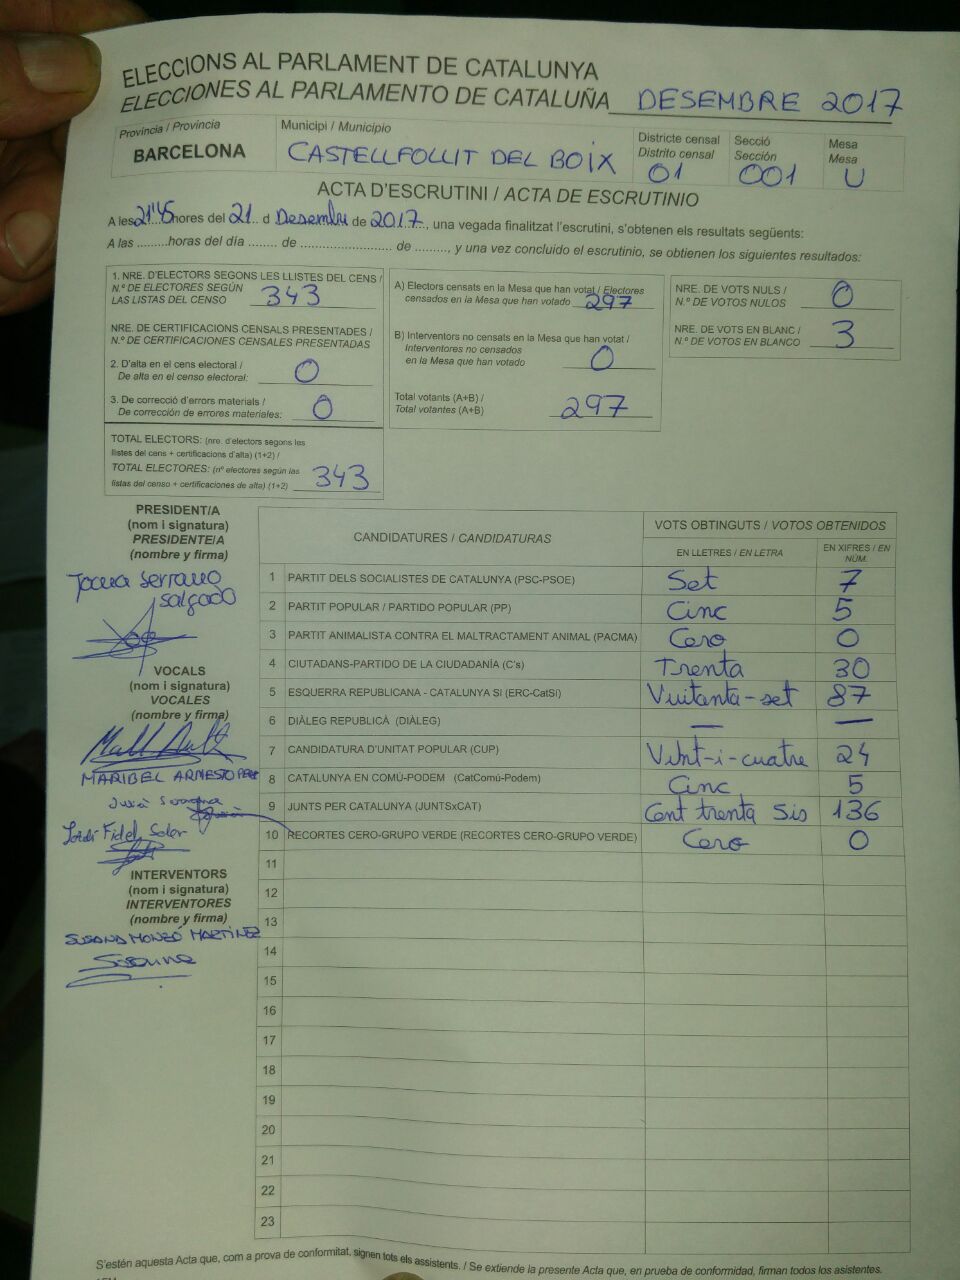 ELECCIONS AL PARLAMENT DE CATALUNYA
ELECCIONES AL PARLAMENTO DE CATALUÑA DESEMBRE 2017
Província / Provincia
BARCELONA
Municipi / Municipio
CASTELLFOLLIT DEL BOIX
Districte censal
Distrito censal
01
Secció
Sección
001
Mesa
Mesa
U
ACTA D'ESCRUTINI / ACTA DE ESCRUTINIO
A les 21'45 hores del 21 d Desembre de 2017, una vegada finalitzat l'escrutini, s'obtenen els resultats següents:
A las .........horas del día ........ de ........................ de ........., y una vez concluido el escrutinio, se obtienen los siguientes resultados:
1. NRE. D'ELECTORS SEGONS LES LLISTES DEL CENS /
N.º DE ELECTORES SEGÚN
LAS LISTAS DEL CENSO 343
NRE. DE CERTIFICACIONS CENSALS PRESENTADES /
N.º DE CERTIFICACIONES CENSALES PRESENTADAS
2. D'alta en el cens electoral /
De alta en el censo electoral: 0
3. De correcció d'errors materials /
De corrección de errores materiales: 0
TOTAL ELECTORS: (nre. d'electors segons les
llistes del cens + certificacions d'alta) (1+2) /
TOTAL ELECTORES: (nº electores según las
listas del censo + certificaciones de alta) (1+2) 343
A) Electors censats en la Mesa que han votat / Electores
censados en la Mesa que han votado 297
B) Interventors no censats en la Mesa que han votat /
Interventores no censados
en la Mesa que han votado 0
Total votants (A+B) /
Total votantes (A+B) 297
NRE. DE VOTS NULS /
N.º DE VOTOS NULOS 0
NRE. DE VOTS EN BLANC /
N.º DE VOTOS EN BLANCO 3
PRESIDENT/A
(nom i signatura)
PRESIDENTE/A
(nombre y firma)
Serrano
Salgado
VOCALS
(nom i signatura)
VOCALES
(nombre y firma)
MARIBEL ARNESTO
Jordi Fidel Soler
INTERVENTORS
(nom i signatura)
INTERVENTORES
(nombre y firma)
SUSANA MONZÓ MARTÍNEZ
CANDIDATURES / CANDIDATURAS
VOTS OBTINGUTS / VOTOS OBTENIDOS
EN LLETRES / EN LETRA
EN XIFRES / EN NÚM.
1 PARTIT DELS SOCIALISTES DE CATALUNYA (PSC-PSOE) Set 7
2 PARTIT POPULAR / PARTIDO POPULAR (PP) Cinc 5
3 PARTIT ANIMALISTA CONTRA EL MALTRACTAMENT ANIMAL (PACMA) Cero 0
4 CIUTADANS-PARTIDO DE LA CIUDADANÍA (C's) Trenta 30
5 ESQUERRA REPUBLICANA - CATALUNYA SI (ERC-CatSí) Vuitanta-set 87
6 DIÀLEG REPUBLICÀ (DIÀLEG) — —
7 CANDIDATURA D'UNITAT POPULAR (CUP) Vint-i-cuatre 24
8 CATALUNYA EN COMÚ-PODEM (CatComú-Podem) Cinc 5
9 JUNTS PER CATALUNYA (JUNTSxCAT) Cent trenta sis 136
10 RECORTES CERO-GRUPO VERDE (RECORTES CERO-GRUPO VERDE) Cero 0
11
12
13
14
15
16
17
18
19
20
21
22
23
S'estén aquesta Acta que, com a prova de conformitat, signen tots els assistents. / Se extiende la presente Acta que, en prueba de conformidad, firman todos los asistentes.